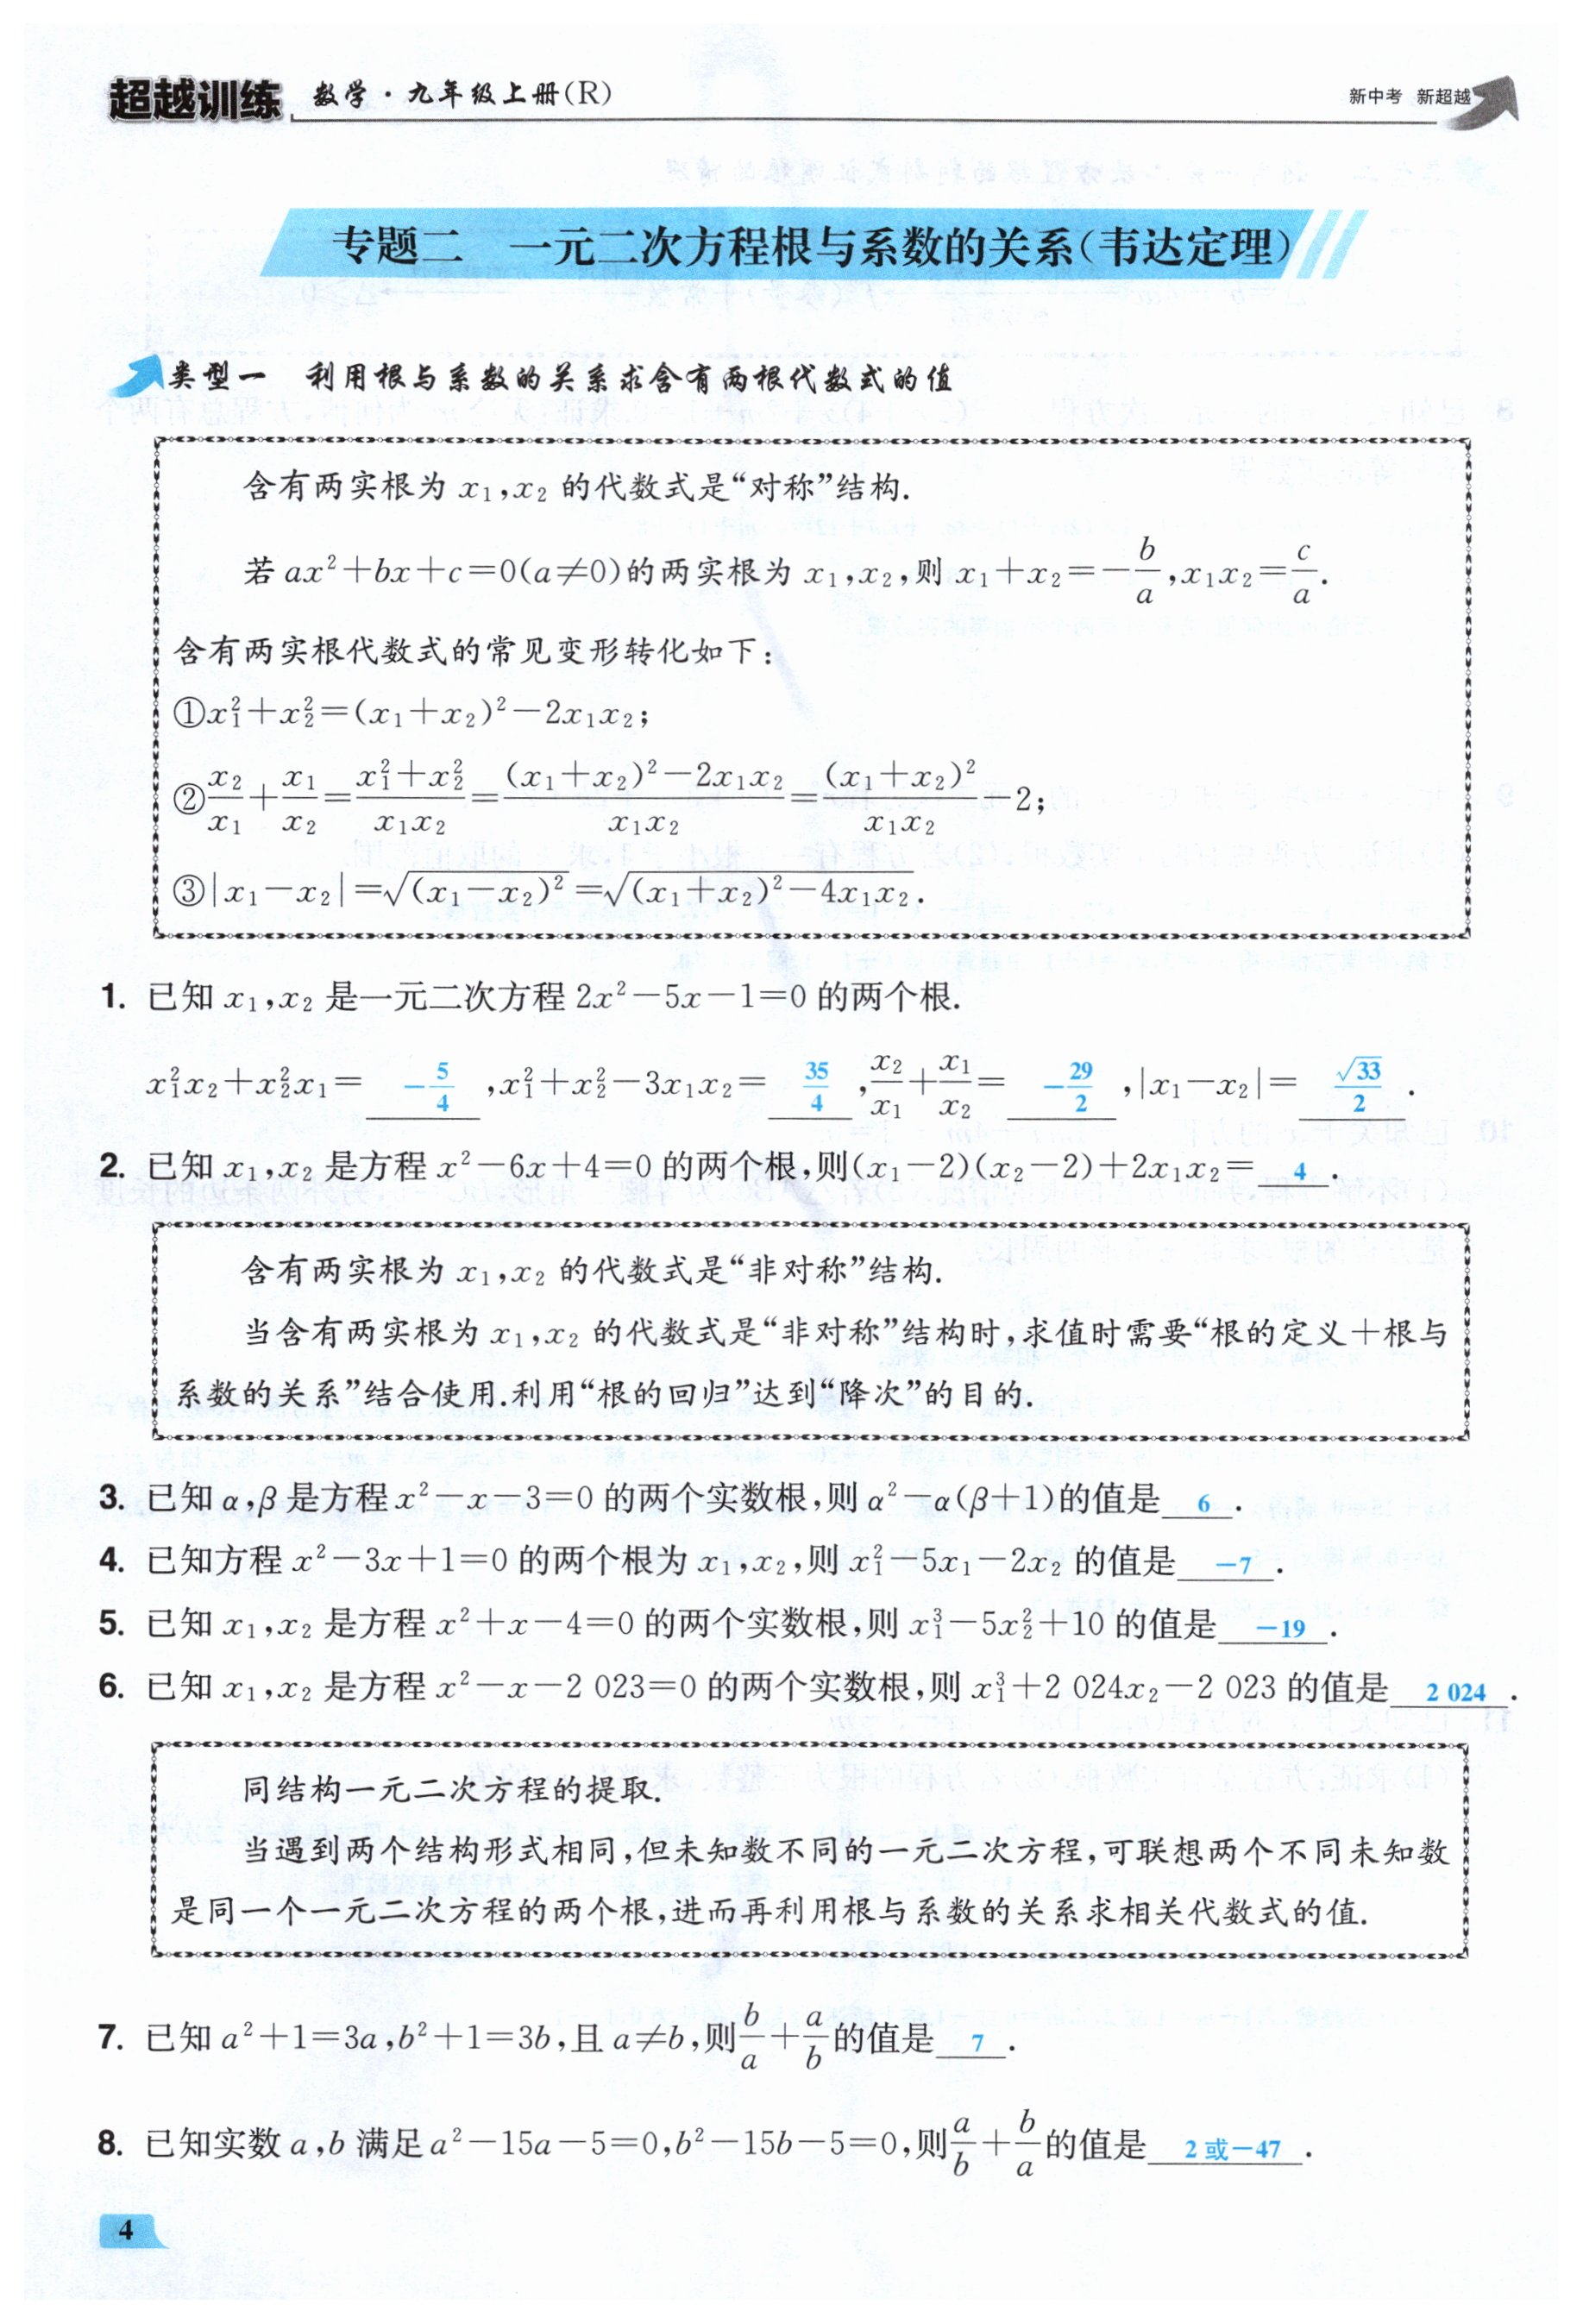 超越训练 数学·九年级上册(R) 新中考 新超越
专题二 一元二次方程根与系数的关系(韦达定理)
类型一 利用根与系数的关系求含有两根代数式的值
含有两实根为 x₁,x₂ 的代数式是“对称”结构.
若 ax²+bx+c=0(a≠0)的两实根为 x₁,x₂,则 x₁+x₂=-b/a,x₁x₂=c/a.
含有两实根代数式的常见变形转化如下:
①x₁²+x₂²=(x₁+x₂)²-2x₁x₂;
②x₂/x₁+x₁/x₂=(x₁²+x₂²)/(x₁x₂)=((x₁+x₂)²-2x₁x₂)/(x₁x₂)=(x₁+x₂)²/(x₁x₂)-2;
③|x₁-x₂|=√((x₁-x₂)²)=√((x₁+x₂)²-4x₁x₂).
1. 已知 x₁,x₂ 是一元二次方程 2x²-5x-1=0 的两个根.
x₁²x₂+x₂²x₁= -5/4 ,x₁²+x₂²-3x₁x₂= 35/4 ,x₂/x₁+x₁/x₂= -29/2 ,|x₁-x₂|= √33/2 .
2. 已知 x₁,x₂ 是方程 x²-6x+4=0 的两个根,则(x₁-2)(x₂-2)+2x₁x₂= 4 .
含有两实根为 x₁,x₂ 的代数式是“非对称”结构.
当含有两实根为 x₁,x₂ 的代数式是“非对称”结构时,求值时需要“根的定义+根与
系数的关系”结合使用.利用“根的回归”达到“降次”的目的.
3. 已知 α,β 是方程 x²-x-3=0 的两个实数根,则 α²-α(β+1)的值是 6 .
4. 已知方程 x²-3x+1=0 的两个根为 x₁,x₂,则 x₁²-5x₁-2x₂ 的值是 -7 .
5. 已知 x₁,x₂ 是方程 x²+x-4=0 的两个实数根,则 x₁³-5x₂²+10 的值是 -19 .
6. 已知 x₁,x₂ 是方程 x²-x-2 023=0 的两个实数根,则 x₁³+2 024x₂-2 023 的值是 2 024 .
同结构一元二次方程的提取.
当遇到两个结构形式相同,但未知数不同的一元二次方程,可联想两个不同未知数
是同一个一元二次方程的两个根,进而再利用根与系数的关系求相关代数式的值.
7. 已知 a²+1=3a,b²+1=3b,且 a≠b,则b/a+a/b的值是 7 .
8. 已知实数 a,b 满足 a²-15a-5=0,b²-15b-5=0,则a/b+b/a的值是 2或-47 .
4